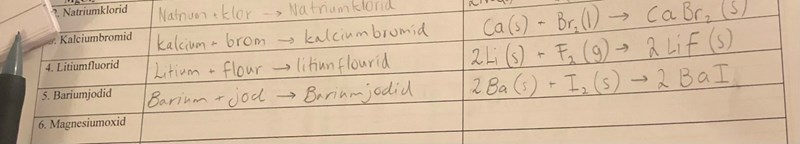 2. Natriumklorid Natrium + klor → Natriumklorid
Kalciumbromid kalcium + brom → kalciumbromid Ca(s) + Br₂(l) → CaBr₂(s)
4. Litiumfluorid Litium + flour → litiunflourid 2Li(s) + F₂(g) → 2LiF(s)
5. Bariumjodid Barium + jod → Bariumjodid 2Ba(s) + I₂(s) → 2BaI
6. Magnesiumoxid